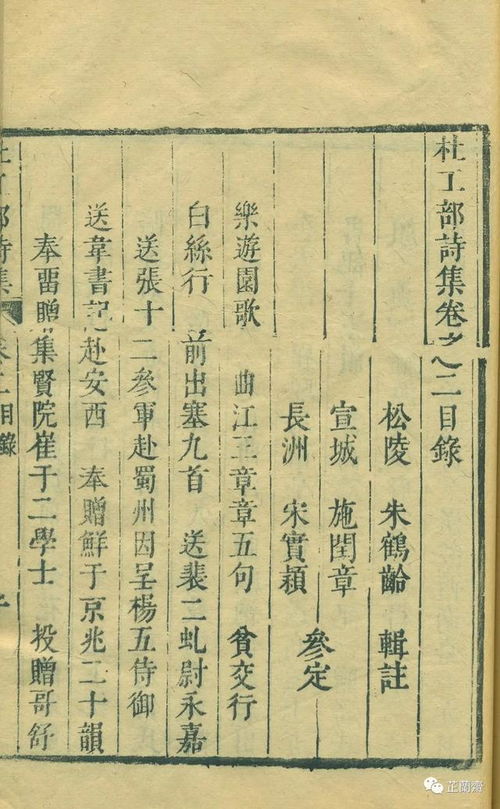 杜工部詩集卷之二目錄
松陵 朱鶴齡 輯註
宣城 施閏章
長洲 宋實穎 參定
樂遊園歌 曲江三章章五句 貧交行
白絲行 前出塞九首 送裴二虬尉永嘉
送張十二參軍赴蜀州因呈楊五侍御
送韋書記赴安西 奉贈鮮于京兆二十韻
奉畱贈集賢院崔于二學士 投贈哥舒
杜工部詩集 卷二目錄
芷蘭齋